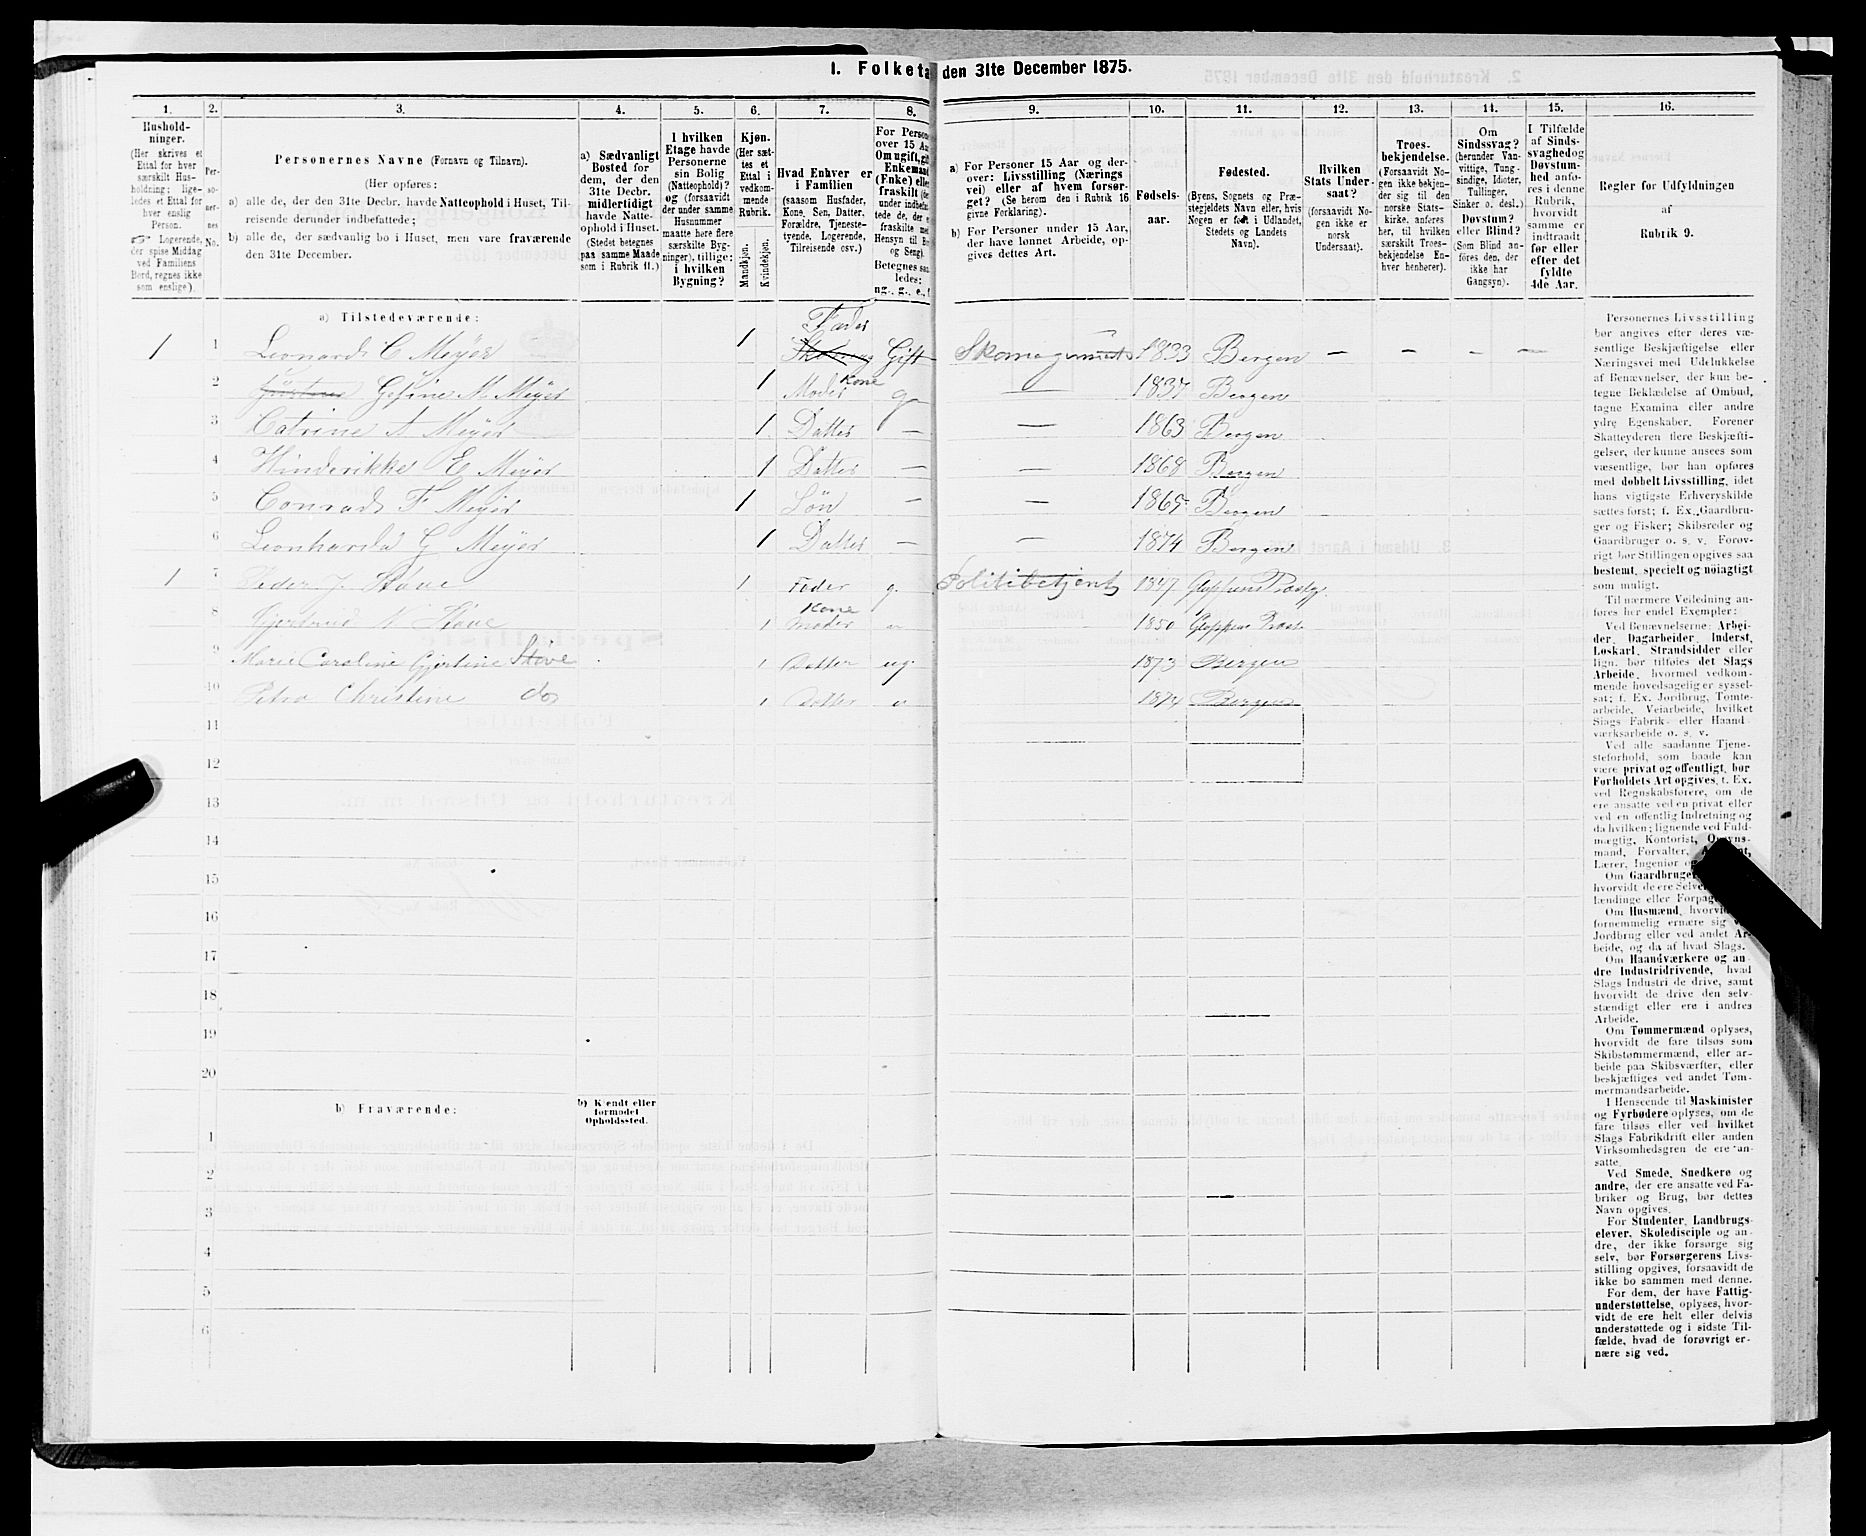 1. Folketa den 31te December 1875.
1. 2. 3. 4. 5. 6. 7. 8. 9. 10. 11. 12. 13. 14. 15. 16.
Hushold-
ninger.
(Her skrives et
Ettal for hver
særskilt Hus-
holdning; lige-
ledes et Ettal for
hver enslig
Person.
☞ Logerende,
der spise Middag
ved Familiens
Bord, regnes ikke
som enslige).
Per-
so-
ner-
nes
No.
Personernes Navne (Fornavn og Tilnavn).
(Her opføres:
a) alle de, der den 31te Decbr. havde Natteophold i Huset, Til-
reisende derunder indbefattede;
b) alle de, der sædvanlig bo i Huset, men vare fraværende
den 31te December.
a) Sædvanligt
Bosted for
dem, der den
31te Decbr.
midlertidigt
havde Natte-
ophold i Huset.
(Stedet betegnes
paa samme Maade
som i Rubrik 11.)
I hvilken
Etage havde
Personerne
sin Bolig
(Natteophold)?
og (forsaavidt
der under samme
Husnummer
maatte høre flere
særskilte Byg-
ninger), tillige:
i hvilken
Bygning?
Kjøn.
(Her sæt-
tes et
Ettal i
vedkom-
mende
Rubrik.
Mandkjøn.
Kvindekjøn.
Hvad Enhver er
i Familien
(saasom Husfader,
Kone, Søn, Datter,
Forældre, Tjeneste-
tyende, Logerende,
Tilreisende osv.)
For Persone
over 15 Aa
Om ugift, gif
Enkemand
(Enke) elle
fraskilt
under indbe
tede de, der e
fraskilte me
Hensyn til Bo
og Seng).
Betegnes saa
ledes:
ug., g., e., f
a) For Personer 15 Aar og der-
over: Livsstilling (Nærings
vei) eller af hvem forsør-
get? (Se herom den i Rubrik 16
givne Forklaring).
b) For Personer under 15 Aar,
der have lønnet Arbeide, op-
gives dettes Art.
Fødsels-
aar.
Fødested.
(Byens, Sognets og Præ-
stegjeldets Navn eller, hvis
Nogen er født i Udlandet,
Stedets og Landets
Navn).
Hvilken
Stats Under-
saat?
(forsaavidt No-
gen ikke er
norsk
Undersaat).
Troes-
bekjendelse.
(Forsaavidt No-
gen ikke bekjen-
der sig til den
norske Stats-
kirke, anføres
her, til hvilken
særskilt Troes-
bekjendelse En-
hver henhører).
Om
Sindssvag?
(herunder Van-
vittige, Tung-
sindige, Idioter,
Tullinger,
Sinker o. desl.)
Døvstum?
eller Blind?
(Som Blind an-
føres den, der
ikke har
Gangsyn).
I Tilfælde
af Sinds-
svaghed og
Døvstum-
hed anfø-
res i denne
Rubrik,
hvorvidt
samme er
indtraadt
før eller
efter det
fyldte
4de Aar.
Regler for Udfyldningen
af
Rubrik 9.
a) Tilstedeværende:
1 1 Leonard C Meyer 1 Fader Gift Skomagermester 1833 Bergen — — — —
2 Gesine M Meyer 1 Moder Kone g 1837 Bergen
3 Catrine A Meyer 1 Datter — — 1863 Bergen
4 Hinderikke E Meyer 1 Datter — — 1868 Bergen
5 Conrad F Meyer 1 Søn — — 1865 Bergen
6 Leonharda G Meyer 1 Datter — — 1874 Bergen
1 7 Peder J. Støve 1 Fader g. Politibetjent 1847 Gloppens Præstg.
8 N Støve 1 Kone Moder 1850 Gloppens Præst.
9 Marie Caroline Gjertine Støve 1 Datter ug. 1873 Bergen
10 Petra Christine do 1 Datter 1874 Bergen
11
12
13
14
15
16
17
18
19
20
b) Fraværende:
b) Kjendt eller
formodet
Opholdssted.
1
2
3
4
5
6
Personernes Livsstilling
bør angives efter deres væ-
sentlige Beskjæftigelse eller
Næringsvei med Udelukkelse
af Benævnelser, der kun be-
tegne Beklædelse af Ombud,
tagne Examina eller andre
ydre Egenskaber. Forener
Skatteyderen flere Beskjæfti-
gelser, der kunne ansees som
væsentlige, bør han opføres
med dobbelt Livsstilling, idet
hans vigtigste Erhvervskilde
sættes først; f. Ex. Gaardbru-
ger og Fisker; Skibsreder og
Gaardbruger o. s. v. Forøv-
rigt bør Stillingen opgives saa
bestemt, specielt og nøiagtigt
som muligt.
Til nærmere Veiledning an-
føres her endel Exempler:
Ved Benævnelserne: Arbei-
der, Dagarbeider, Inderst,
Løskarl, Strandsidder eller
lign. bør tilføies det Slags
Arbeide, hvormed vedkom-
mende hovedsagelig er syssel-
sat; f. Ex. Jordbrug, Tomte-
arbeide, Veiarbeide, hvilket
Slags Fabrik- eller Haand-
værksarbeide o. s. v.
Ved alle saadanne Tjene-
steforhold, som baade kan
være privat og offentligt, bør
Forholdets Art opgives, f. Ex.
ved Regnskabsførere, om de
ere ansatte ved en privat eller
ved en offentlig Indretning og
da hvilken; lignende ved Fuld-
mægtig, Kontorist, Opsyns-
mand, Forvalter,
Lærer, Ingeniør
Om Gaardbruger
hvorvidt de ere Selve
lændinge eller Forpag
Om Husmænd, hvorvi
fornemmelig ernære sig v
Jordbrug eller ved andet Ar-
beide, og da af hvad Slags.
Om Haandværkere og an-
dre Industridrivende, hvad
Slags Industri de drive, samt
hvorvidt de drive den selv-
stændigt eller ere i andres
Arbeide.
Om Tømmermænd oplyses,
hvorvidt de fare tilsøs som
Skibstømmermænd, eller ar-
beide paa Skibsværfter, eller
beskjæftiges ved andet Tøm-
mermandsarbeide.
I Henseende til Maskinister
og Fyrbødere oplyses, om de
fare tilsøs eller ved hvilket
Slags Fabrikdrift eller anden
Virksomhedsgren de ere an-
satte.
Ved Smede, Snedkere og
andre, der ere ansatte ved Fa-
briker og Brug, bør dettes
Navn opgives.
For Studenter, Landbrugs-
elever, Skoledisciple og an-
dre, der ikke forsørge sig
selv, bør Forsørgerens Livs-
stilling opgives, forsaavidt de
ikke bo sammen med denne.
For dem, der have Fattig-
understøttelse, oplyses, hvor-
vidt de ere helt eller delvis
understøttede og i sidste Til-
fælde, hvad de forøvrigt er-
nære sig ved.